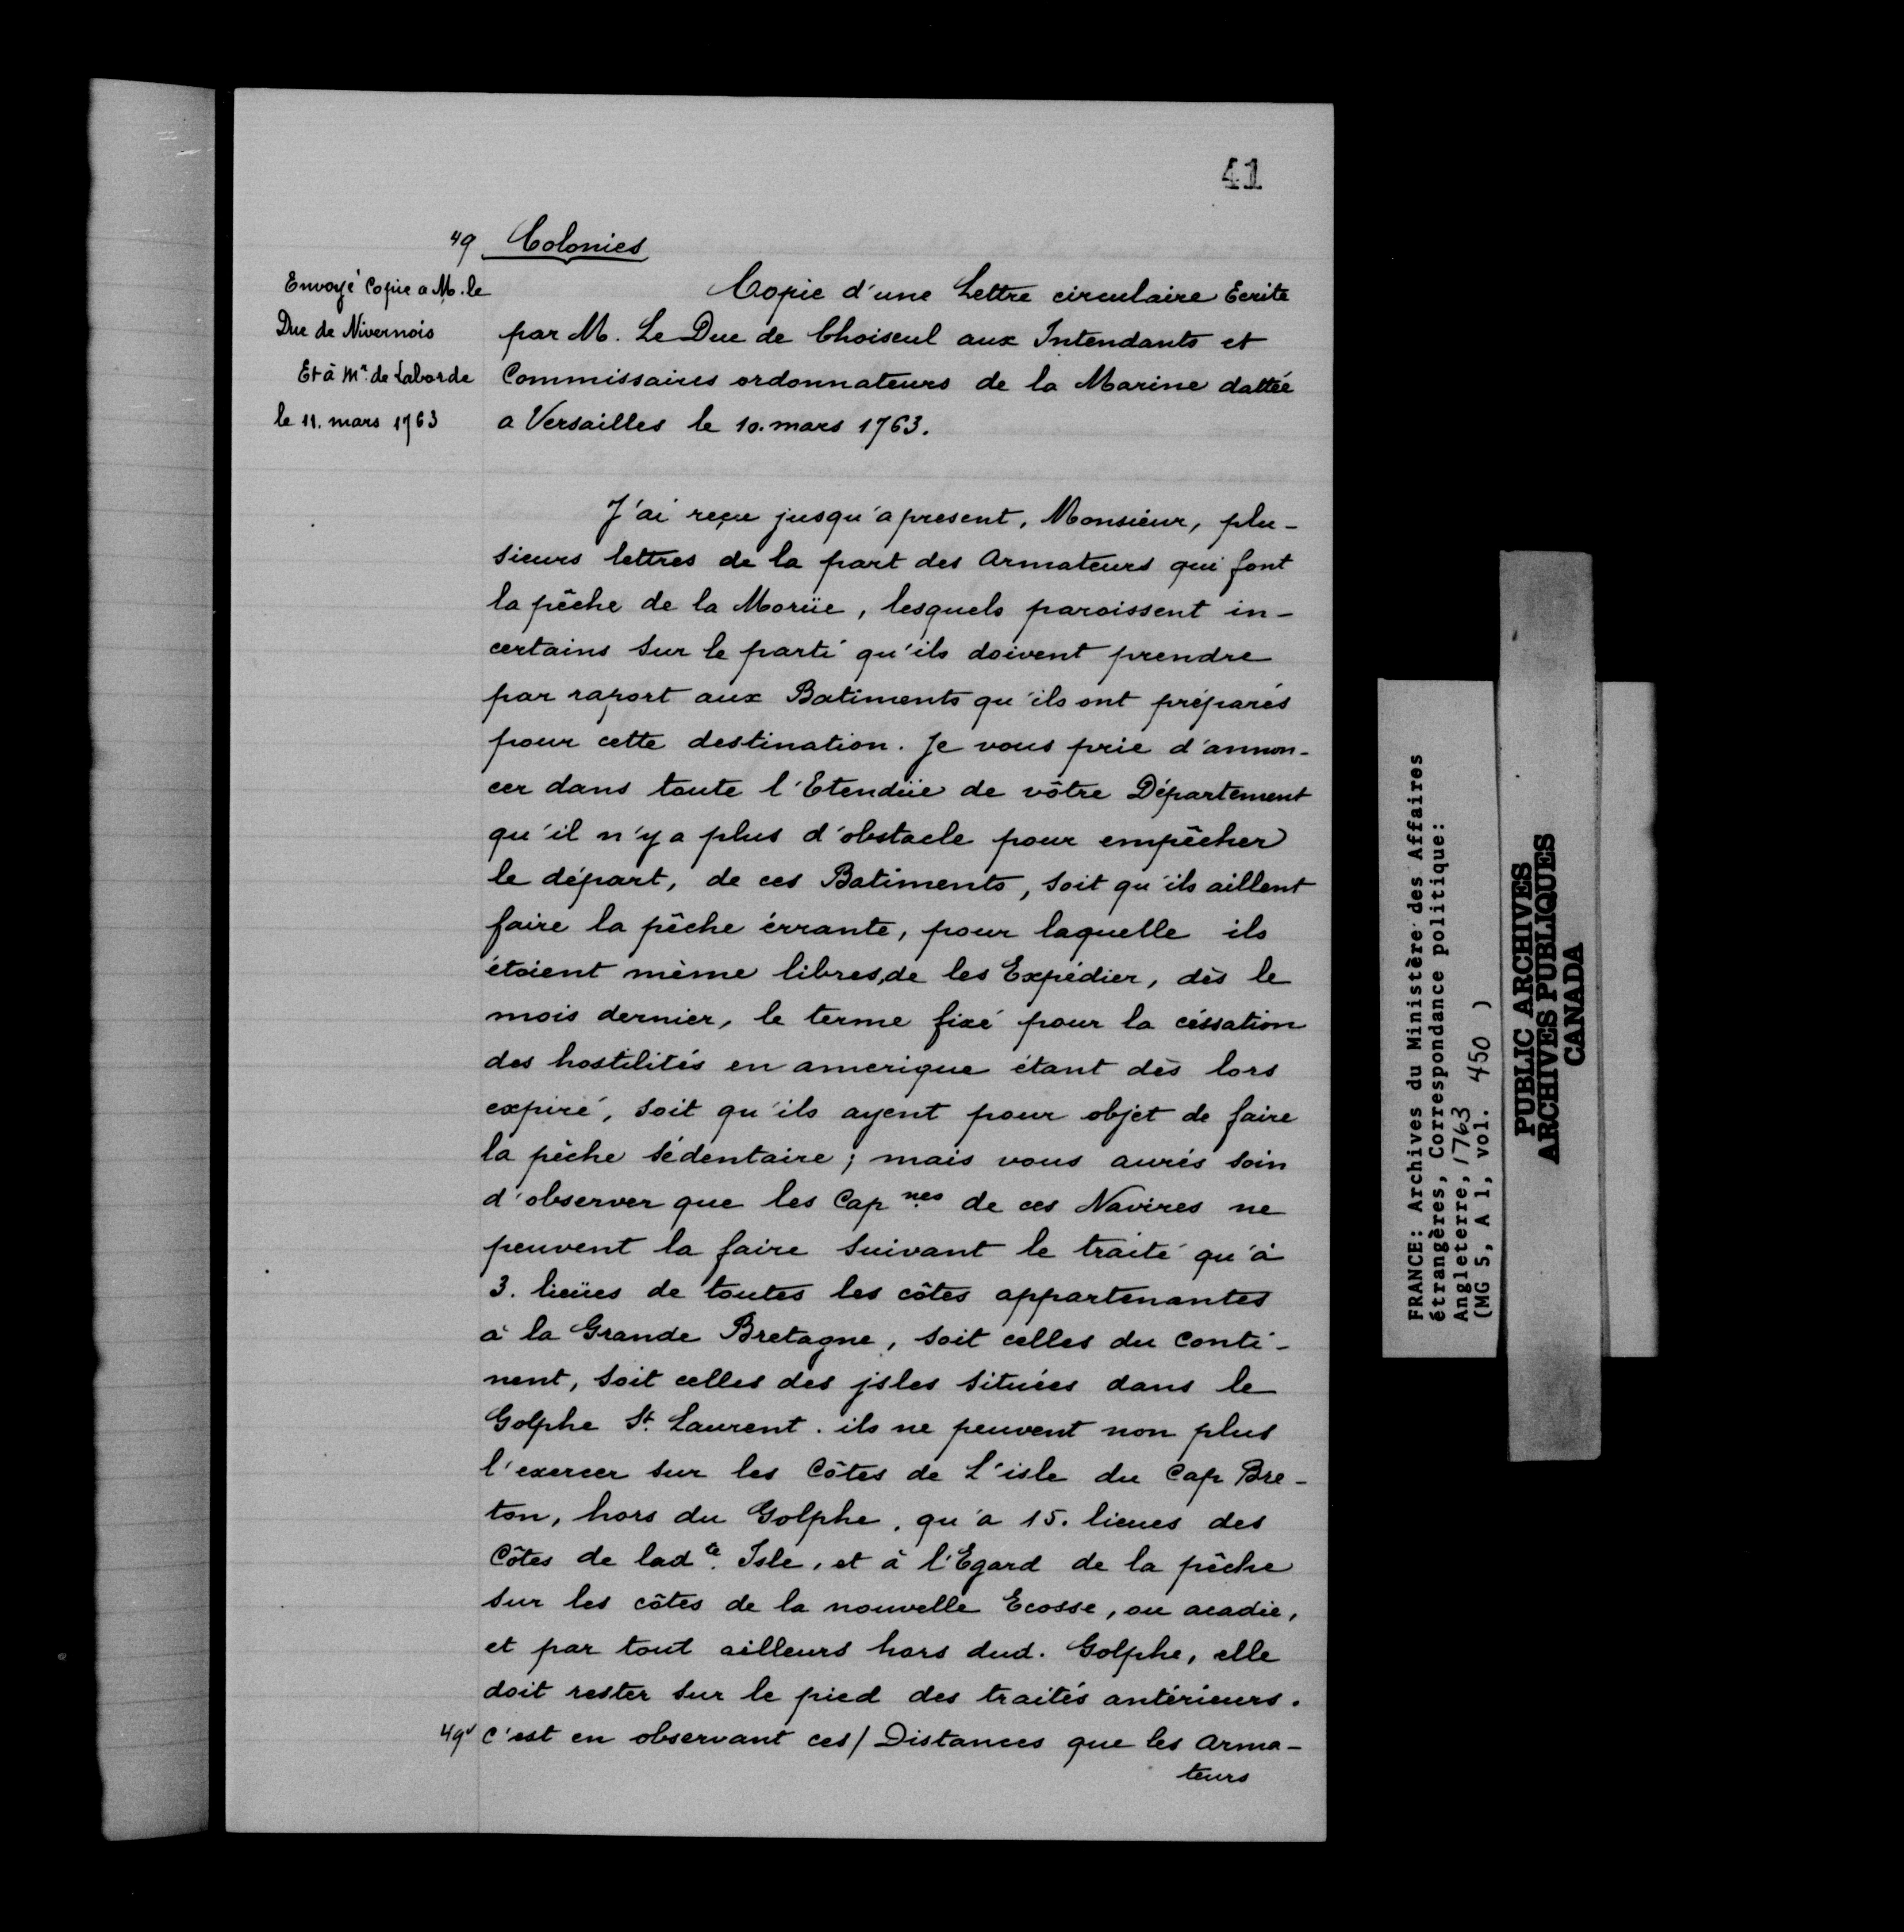 41
49 Colonies
Envoyé Copie a M. le
Duc de Nivernois
Et à Mr. de Laborde
le 11. mars 1763
Copie d'une Lettre circulaire Ecrite
par M. Le Duc de Choiseul aux Intendants et
Commissaires ordonnateurs de la Marine dattée
a Versailles le 10. mars 1763.
J'ai reçu jusqu'a present, Monsieur, plu-
sieurs lettres de la part des Armateurs qui font
la pêche de la Morüe, lesquels paroissent in-
certains sur le parti qu'ils doivent prendre
par raport aux Batiments qu'ils ont préparés
pour cette destination. Je vous prie d'annon-
cer dans toute l'Etendüe de vôtre Département
qu'il n'y a plus d'obstacle pour empêcher
le départ, de ces Batiments, soit qu'ils aillent
faire la pêche érrante, pour laquelle ils
étoient même libres, de les Expédier, dès le
mois dernier, le terme fixé pour la céssation
des hostilités en amerique étant dès lors
expiré, soit qu'ils ayent pour objet de faire
la pêche sédentaire; mais vous aurés soin
d'observer que les Cap.nes de ces Navires ne
peuvent la faire suivant le traité qu'à
3. lieües de toutes les côtes appartenantes
à la Grande Bretagne, soit celles du Conti-
nent, soit celles des jsles situées dans le
Golphe St. Laurent. ils ne peuvent non plus
l'exercer sur les Côtes de L'isle du Cap Bre-
ton, hors du Golphe, qu'a 15. lieues des
Côtes de lad.e Isle, et à l'Egard de la pêche
sur les côtes de la nouvelle Ecosse, ou acadie,
et par tout ailleurs hors dud. Golphe, elle
doit rester sur le pied des traités antérieurs.
49v C'est en observant ces / Distances que les Arma-
teurs
FRANCE: Archives du Ministère des Affaires
étrangères, Correspondance politique:
Angleterre, 1763
(MG 5, A 1, vol. 450 )
PUBLIC ARCHIVES
ARCHIVES PUBLIQUES
CANADA